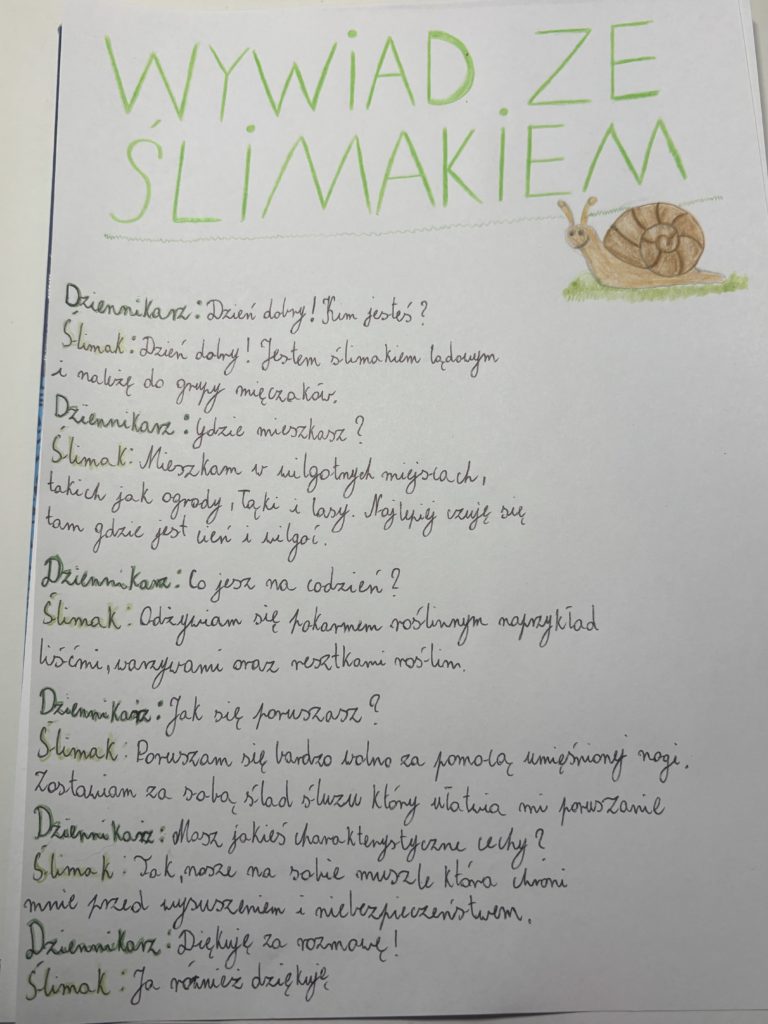 WYWiAD ZE
ŚLiMAKiEM
Dziennikarz: Dzień dobry! Kim jesteś?
Ślimak: Dzień dobry! Jestem ślimakiem lądowym
i należę do grupy mięczaków.
Dziennikarz: Gdzie mieszkasz?
Ślimak: Mieszkam w wilgotnych miejscach,
takich jak ogrody, łąki i lasy. Najlepiej czuję się
tam gdzie jest cień i wilgoć.
Dziennikarz: Co jesz na codzień?
Ślimak: Odżywiam się pokarmem roślinnym naprzykład
liśćmi, warzywami oraz resztkami roślim.
Dziennikarz: Jak się poruszasz?
Ślimak: Poruszam się bardzo wolno za pomocą umięśnionej nogi.
Zostawiam za sobą ślad śluzu który ułatwia mi poruszanie
Dziennikarz: Masz jakieś charakterystyczne cechy?
Ślimak: Tak, nosze na sobie muszle która chroni
mnie przed wysuszeniem i niebezpieczeństwem.
Dziennikarz: Diękuję za rozmowę!
Ślimak: Ja również dziękuję